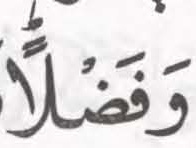 وَفَضْلًا